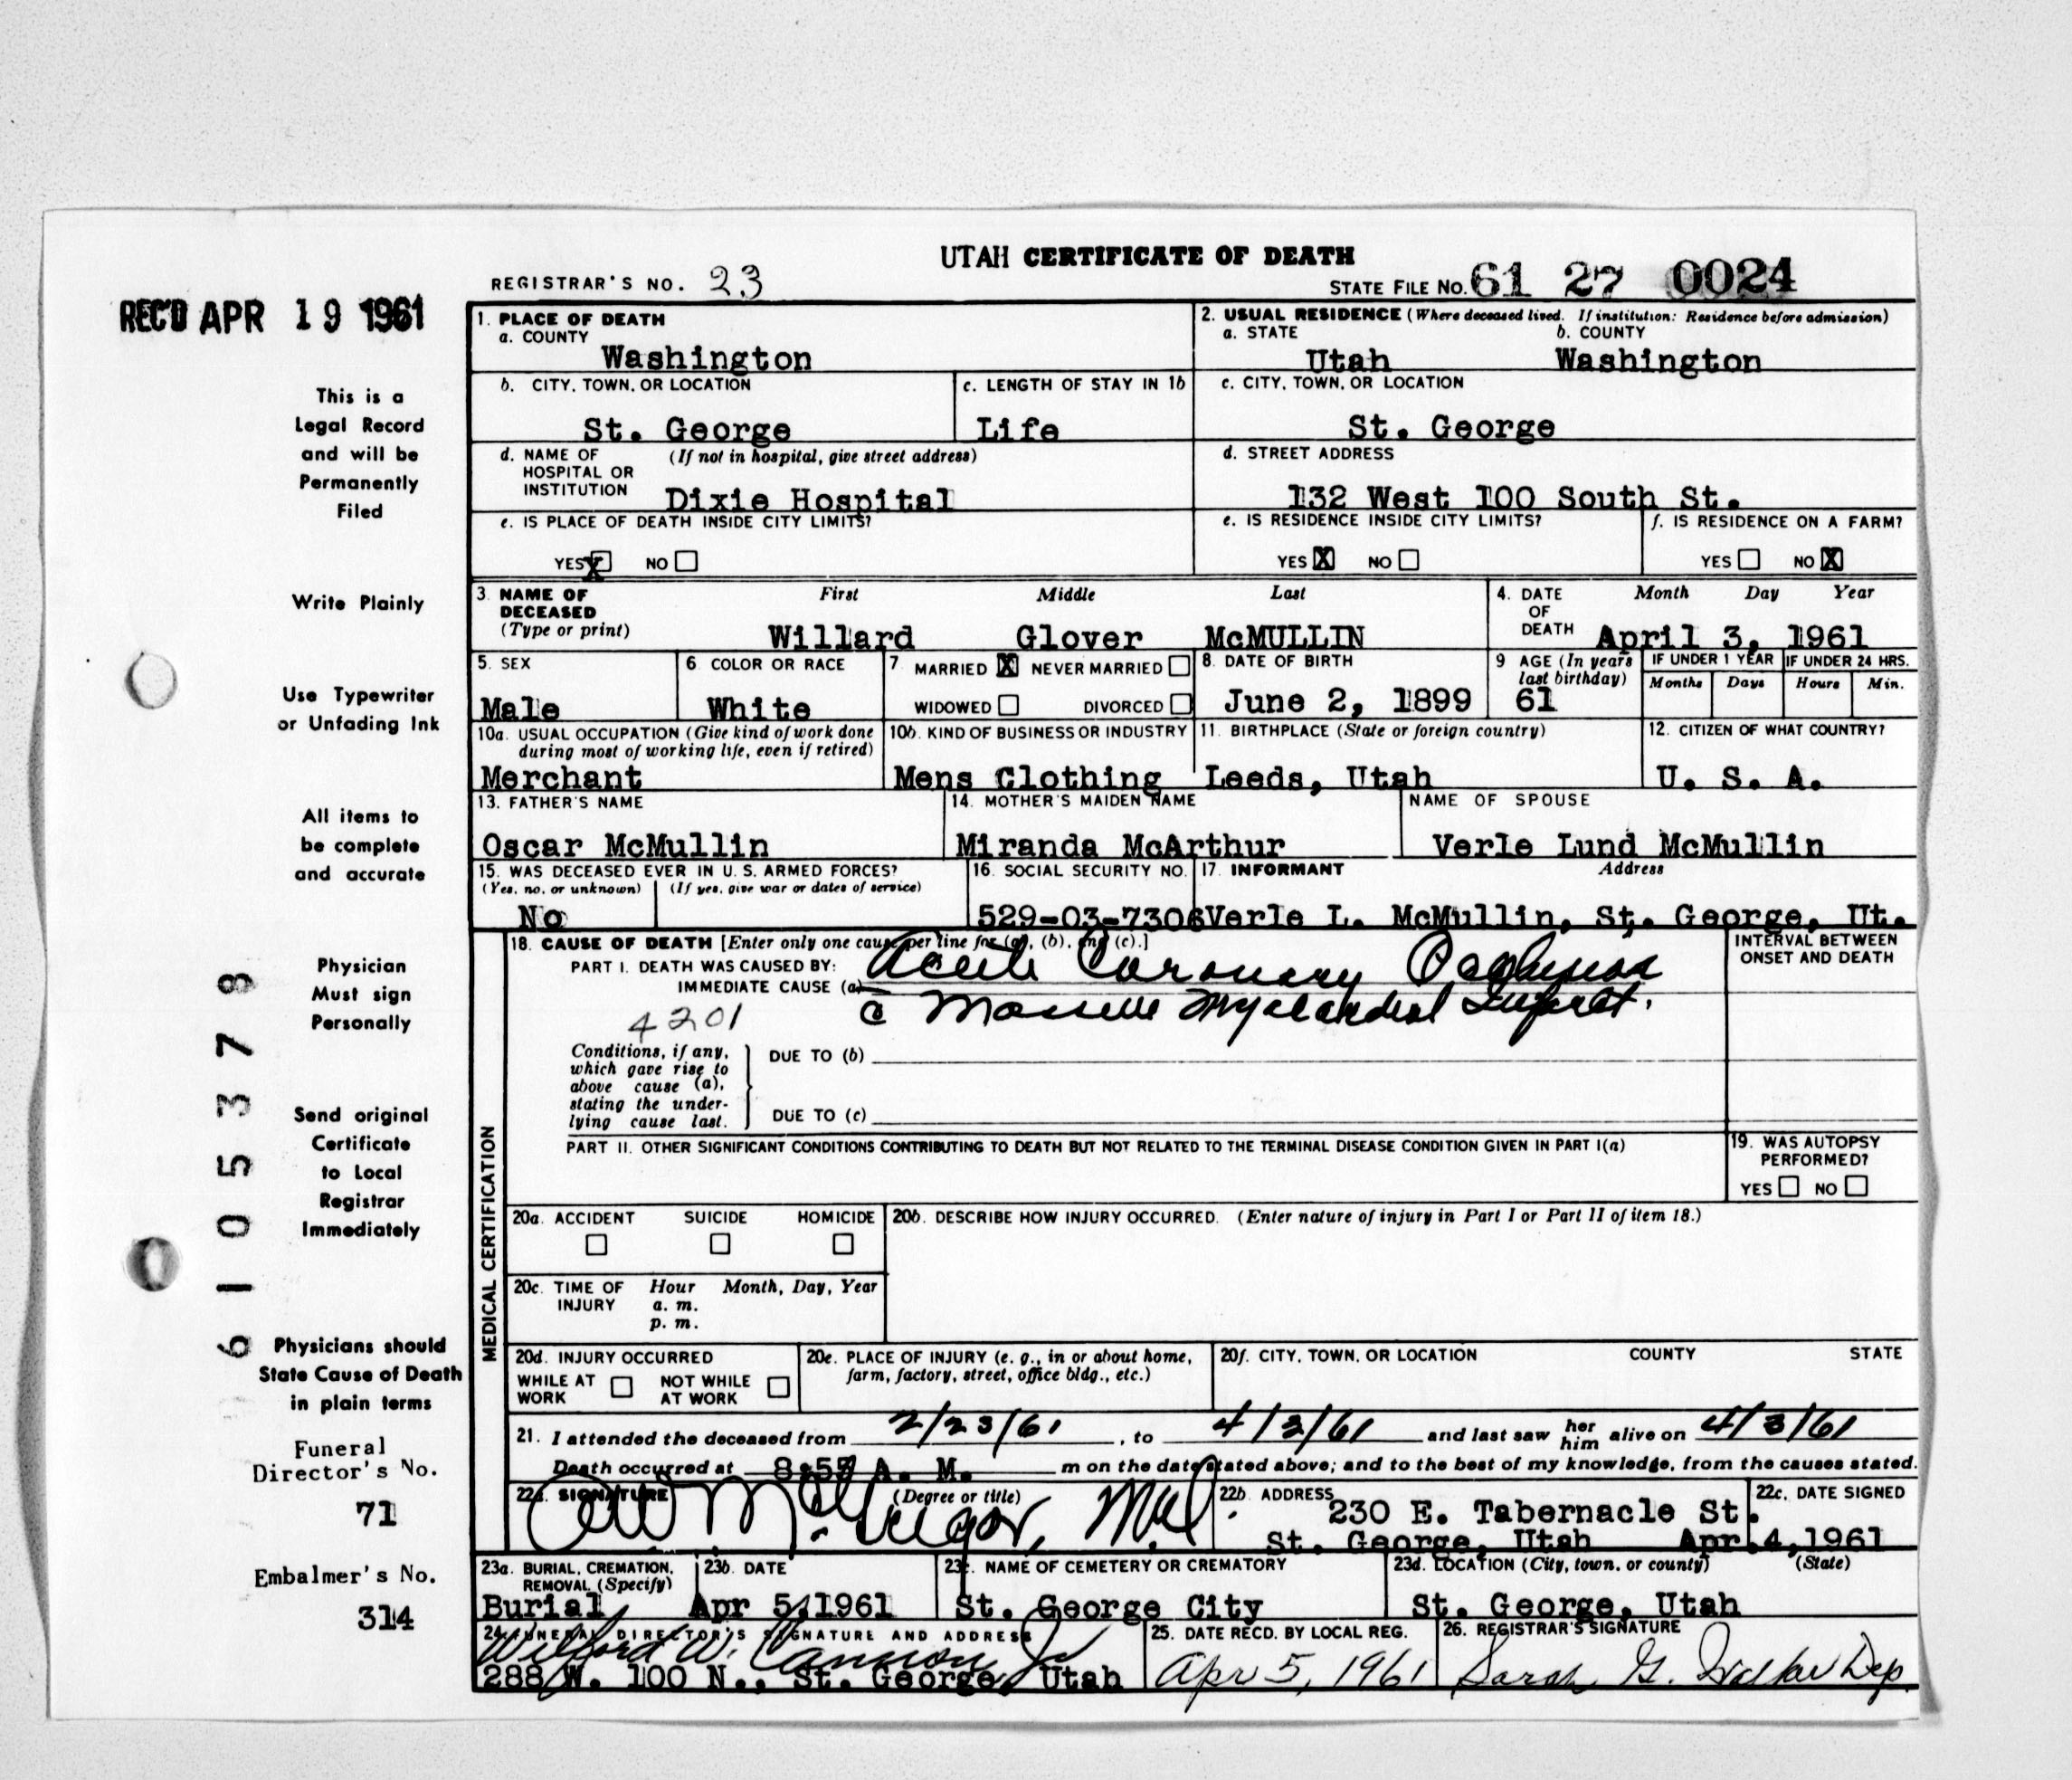 UTAH CERTIFICATE OF DEATH
REGISTRAR'S NO. 23
STATE FILE No. 61 27 0024
REC'D APR 19 1961
This is a
Legal Record
and will be
Permanently
Filed
Write Plainly
Use Typewriter
or Unfading Ink
All items to
be complete
and accurate
Physician
Must sign
Personally
Send original
Certificate
to Local
Registrar
Immediately
Physicians should
State Cause of Death
in plain terms
Funeral
Director's No.
71
Embalmer's No.
314
6105378
1. PLACE OF DEATH
a. COUNTY
Washington
2. USUAL RESIDENCE (Where deceased lived. If institution: Residence before admission)
a. STATE b. COUNTY
Utah Washington
b. CITY, TOWN, OR LOCATION
St. George
c. LENGTH OF STAY IN 1b
Life
c. CITY, TOWN, OR LOCATION
St. George
d. NAME OF (If not in hospital, give street address)
HOSPITAL OR
INSTITUTION Dixie Hospital
d. STREET ADDRESS
132 West 100 South St.
e. IS PLACE OF DEATH INSIDE CITY LIMITS?
YES X NO
e. IS RESIDENCE INSIDE CITY LIMITS?
YES X NO
f. IS RESIDENCE ON A FARM?
YES NO X
3. NAME OF First Middle Last
DECEASED
(Type or print)
Willard Glover McMULLIN
4. DATE Month Day Year
OF
DEATH April 3, 1961
5. SEX
Male
6. COLOR OR RACE
White
7. MARRIED X NEVER MARRIED
WIDOWED DIVORCED
8. DATE OF BIRTH
June 2, 1899
9 AGE (In years
last birthday)
61
IF UNDER 1 YEAR
Months Days
IF UNDER 24 HRS.
Hours Min.
10a. USUAL OCCUPATION (Give kind of work done
during most of working life, even if retired)
Merchant
10b. KIND OF BUSINESS OR INDUSTRY
Mens Clothing
11. BIRTHPLACE (State or foreign country)
Leeds, Utah
12. CITIZEN OF WHAT COUNTRY?
U. S. A.
13. FATHER'S NAME
Oscar McMullin
14. MOTHER'S MAIDEN NAME
Miranda McArthur
NAME OF SPOUSE
Verle Lund McMullin
15. WAS DECEASED EVER IN U. S. ARMED FORCES?
(Yes, no, or unknown) (If yes, give war or dates of service)
No
16. SOCIAL SECURITY NO.
529-03-7306
17. INFORMANT Address
Verle L. McMullin, St. George, Ut.
MEDICAL CERTIFICATION
18. CAUSE OF DEATH [Enter only one cause per line for (a), (b), and (c).]
PART I. DEATH WAS CAUSED BY:
IMMEDIATE CAUSE (a) Acute Coronary Occlusion
c̄ Massive Myocardial Infarct.
4201
INTERVAL BETWEEN
ONSET AND DEATH
Conditions, if any,
which gave rise to
above cause (a),
stating the under-
lying cause last.
DUE TO (b)
DUE TO (c)
PART II. OTHER SIGNIFICANT CONDITIONS CONTRIBUTING TO DEATH BUT NOT RELATED TO THE TERMINAL DISEASE CONDITION GIVEN IN PART I(a)
19. WAS AUTOPSY
PERFORMED?
YES NO
20a. ACCIDENT SUICIDE HOMICIDE
20b. DESCRIBE HOW INJURY OCCURRED. (Enter nature of injury in Part I or Part II of item 18.)
20c. TIME OF Hour Month, Day, Year
INJURY a. m.
p. m.
20d. INJURY OCCURRED
WHILE AT NOT WHILE
WORK AT WORK
20e. PLACE OF INJURY (e. g., in or about home,
farm, factory, street, office bldg., etc.)
20f. CITY, TOWN, OR LOCATION COUNTY STATE
21. I attended the deceased from 2/23/61, to 4/3/61 and last saw her him alive on 4/3/61
Death occurred at A. M. m on the date stated above; and to the best of my knowledge, from the causes stated.
22a. SIGNATURE (Degree or title)
McGregor, M.D.
22b. ADDRESS
230 E. Tabernacle St.
St. George, Utah
22c. DATE SIGNED
Apr.4,1961
23a. BURIAL, CREMATION,
REMOVAL (Specify)
Burial
23b. DATE
Apr 5,1961
23c. NAME OF CEMETERY OR CREMATORY
St. George City
23d. LOCATION (City, town, or county) (State)
St. George, Utah
24. FUNERAL DIRECTOR'S SIGNATURE AND ADDRESS
Wilford W. Cannon Jr
288 W. 100 N., St. George, Utah
25. DATE RECD. BY LOCAL REG.
Apr 5, 1961
26. REGISTRAR'S SIGNATURE
Sarah G. Walker Dep.